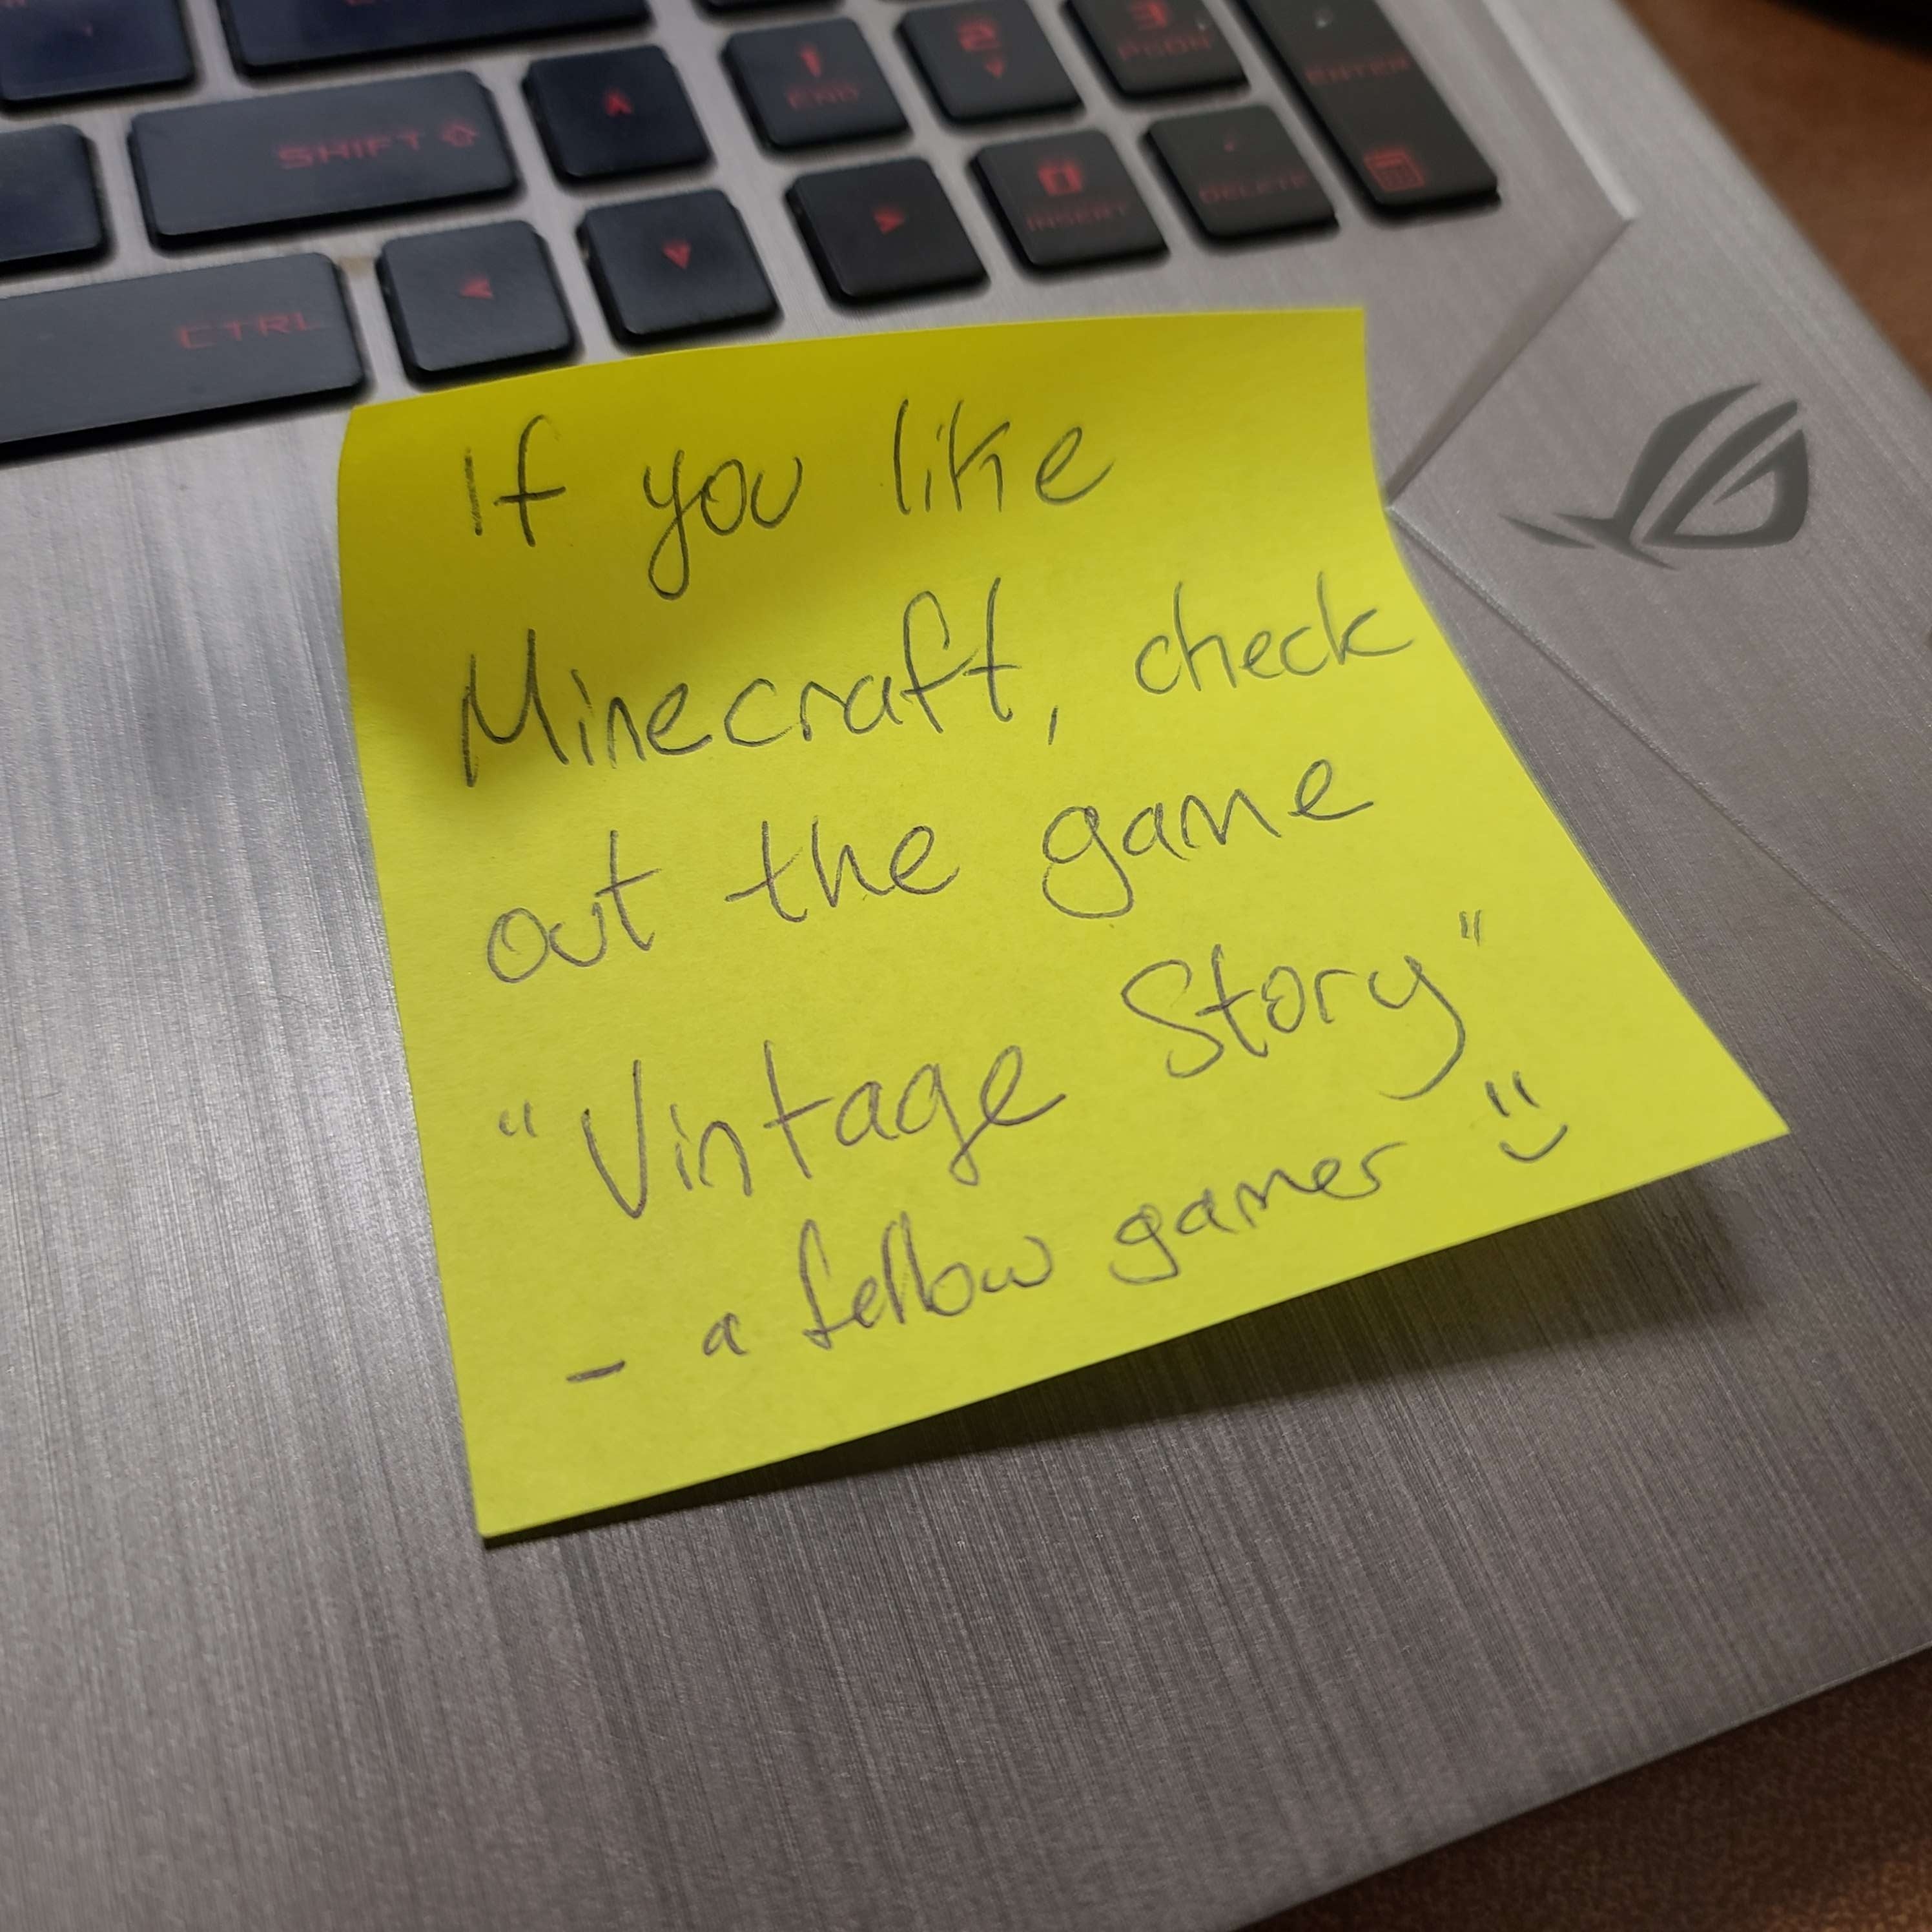 1 2 3
END PGDN ENTER
SHIFT
0
INSERT DELETE
CTRL
If you like
Minecraft, check
out the game
"Vintage Story"
- a fellow gamer